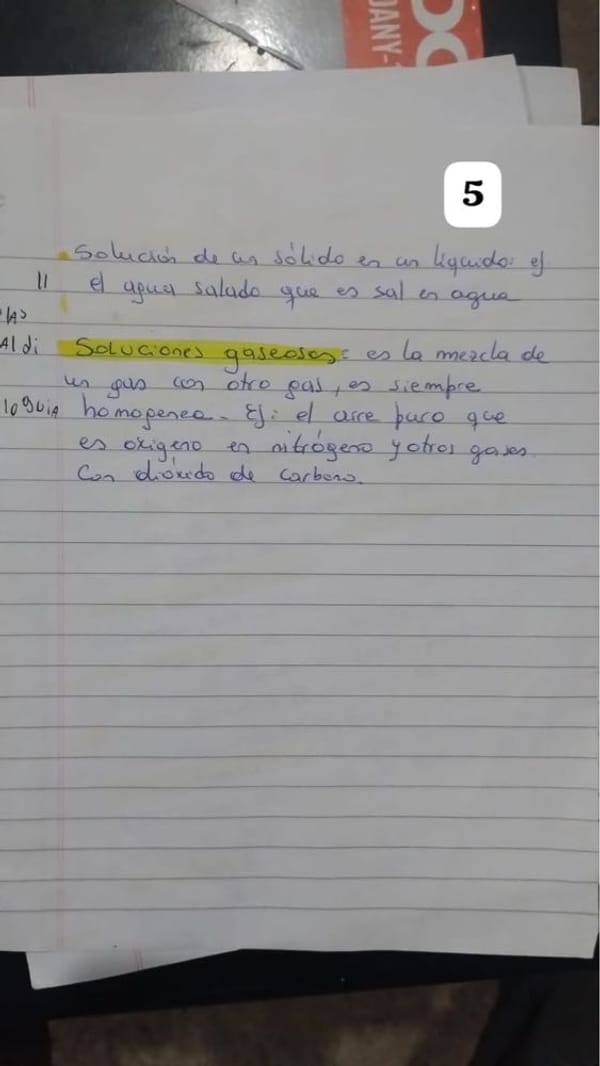 DANY-
5
Solución de un sólido en un líquido: ej
11 el agua salado que es sal en agua
las
Al di Soluciones gaseosas: es la mezcla de
un gas con otro gas, es siempre
homogenea. Ej: el aire puro que
es oxigeno en nitrógeno y otros gases
Con dióxido de carbono.